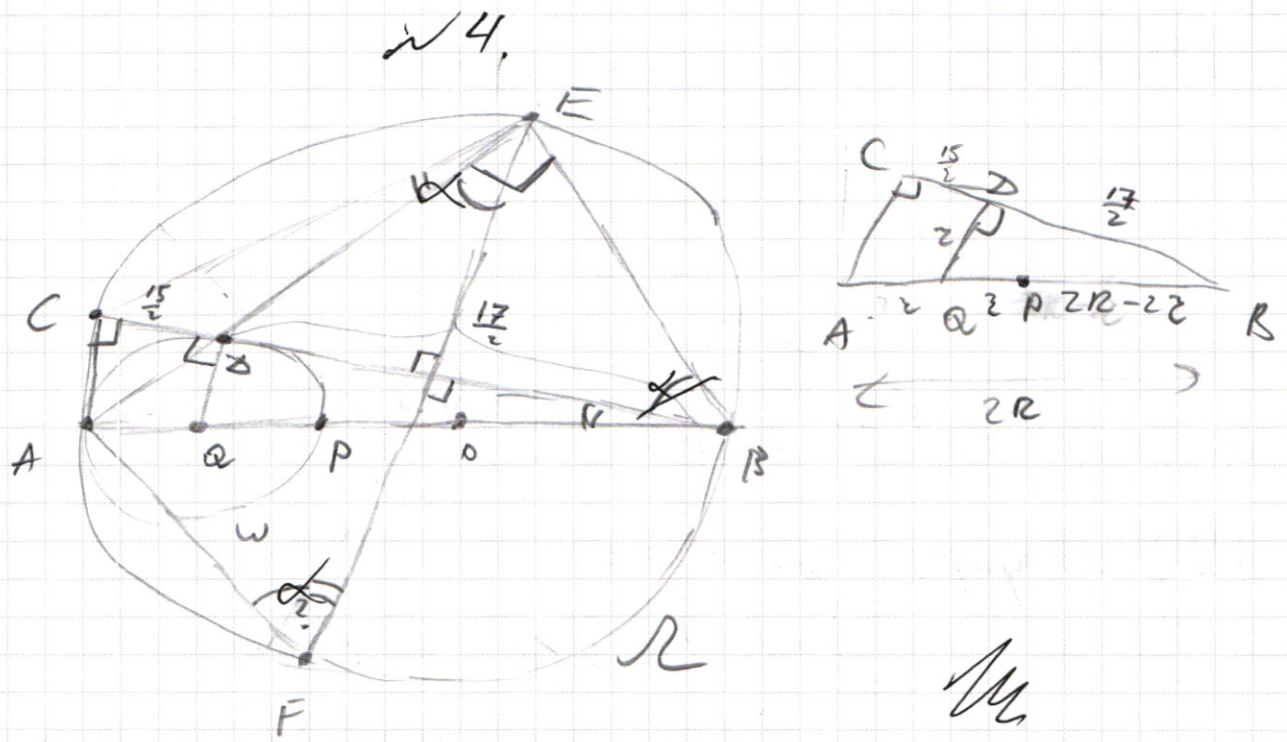 №4.
E
α
C
15/2
17/2
D
α
A
Q
P
O
B
ω
α/2
Ω
F
C
15/2
D
17/2
r
A
r
Q
r
P
2R-2r
B
2R